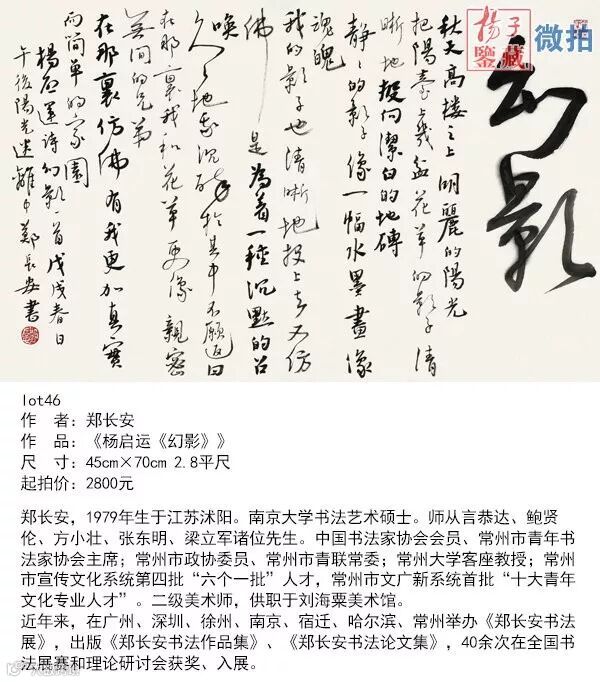 揚子
鑒藏
微拍
幻影
秋天高楼之上明麗的陽光
把陽臺上幾盆花草的影子清
晰地投向潔白的地磚
静静的影子像一幅水墨畫像
魂魄
我的影子也清晰地投上去又仿
佛 是為着一種沉默的召
唤
久久地我沉醉於其中不願返回
在那裏我和花草更像親密
無間的兄弟
在那裏仿佛有我更加真實
而简单的家園
楊啟運詩幻影一首戊戌春日
午後陽光迷離中鄭長安書
lot46
作　者：郑长安
作　品：《杨启运《幻影》》
尺　寸：45cm×70cm 2.8平尺
起拍价：2800元
郑长安，1979年生于江苏沭阳。南京大学书法艺术硕士。师从言恭达、鲍贤
伦、方小壮、张东明、梁立军诸位先生。中国书法家协会会员、常州市青年书
法家协会主席；常州市政协委员、常州市青联常委；常州大学客座教授；常州
市宣传文化系统第四批“六个一批”人才，常州市文广新系统首批“十大青年
文化专业人才”。二级美术师，供职于刘海粟美术馆。
近年来，在广州、深圳、徐州、南京、宿迁、哈尔滨、常州举办《郑长安书法
展》，出版《郑长安书法作品集》、《郑长安书法论文集》，40余次在全国书
法展赛和理论研讨会获奖、入展。